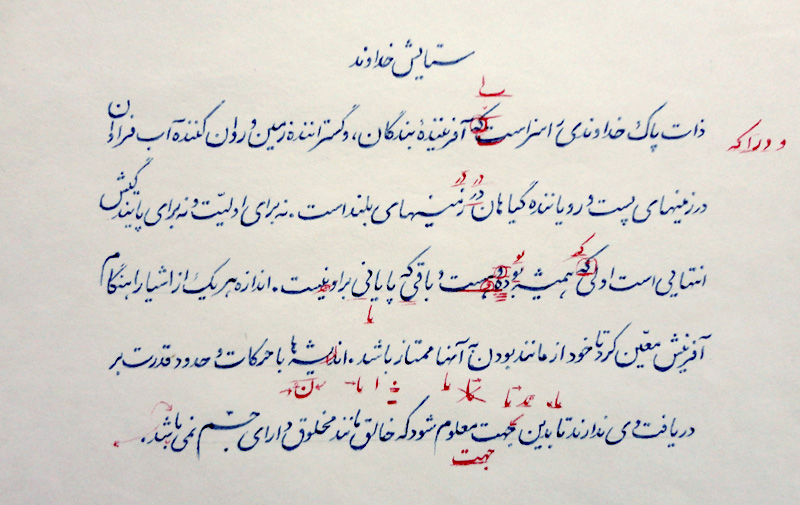 ستایش خداوند
ذات پاک خداوندی را سزاست که آفرینندهٔ بندگان، و گستراننده زمین و روان کننده آب فراوان
در زمینهای پست و رویاننده گیاهان در زمینهای بلند است. نه برای اولیّت و نه برای پایندگیش
انتهایی است اولی که همیشه بوده و هست و باقی که پایانی براو نیست. اندازه هر یک از اشیا را هنگام
آفرینش معیّن کرد تا خود از مانند بودن آنها ممتاز باشد. اندیشه ها با حرکات و حدود قدرت بر
دریافت وی ندارند تا بدین جهت معلوم شود که خالق مانند مخلوق دارای جسم نمی باشد.
جهت